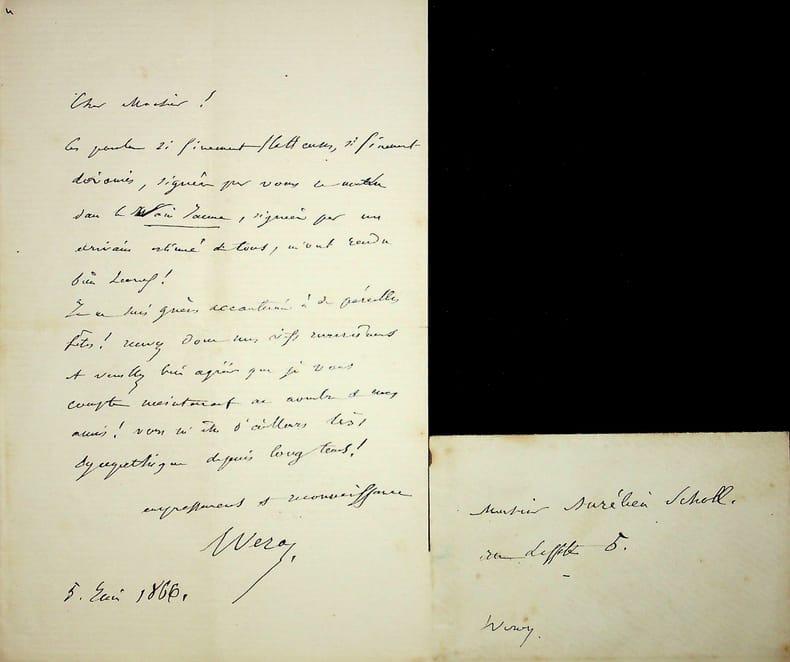 Cher Monsieur !
Ces paroles si finement flatteuses, si finement
, signées par vous ce matin
dans le Nain Jaune, signées par un
écrivain estimé de tous, m'ont rendu
bien heureux !
Je ne suis guères accoutumé à de pareilles
fêtes ! recevez donc mes vifs remerciements
et veuillez bien agréer que je vous
compte maintenant au nombre de mes
amis ! vous m'êtes d'ailleurs très
sympathique depuis long tems !
empressement et reconnaissance
5. Juin 1866.
Monsieur Aurélien Scholl.
rue Laffitte 5.